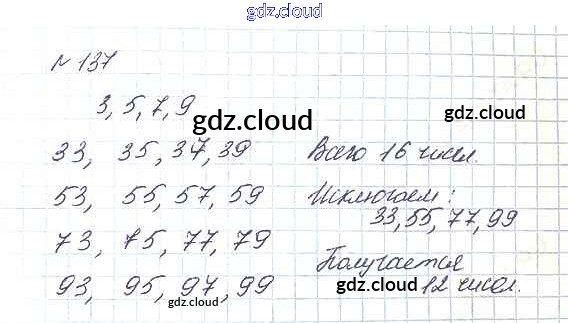 gdz.cloud
№ 137
3, 5, 7, 9
gdz.cloud
gdz.cloud
33, 35, 37, 39 Всего 16 чисел.
53, 55, 57, 59 Исключаем:
33, 55, 77, 99
73, 75, 77, 79
Получается
93, 95, 97, 99 12 чисел.
gdz.cloud
gdz.cloud